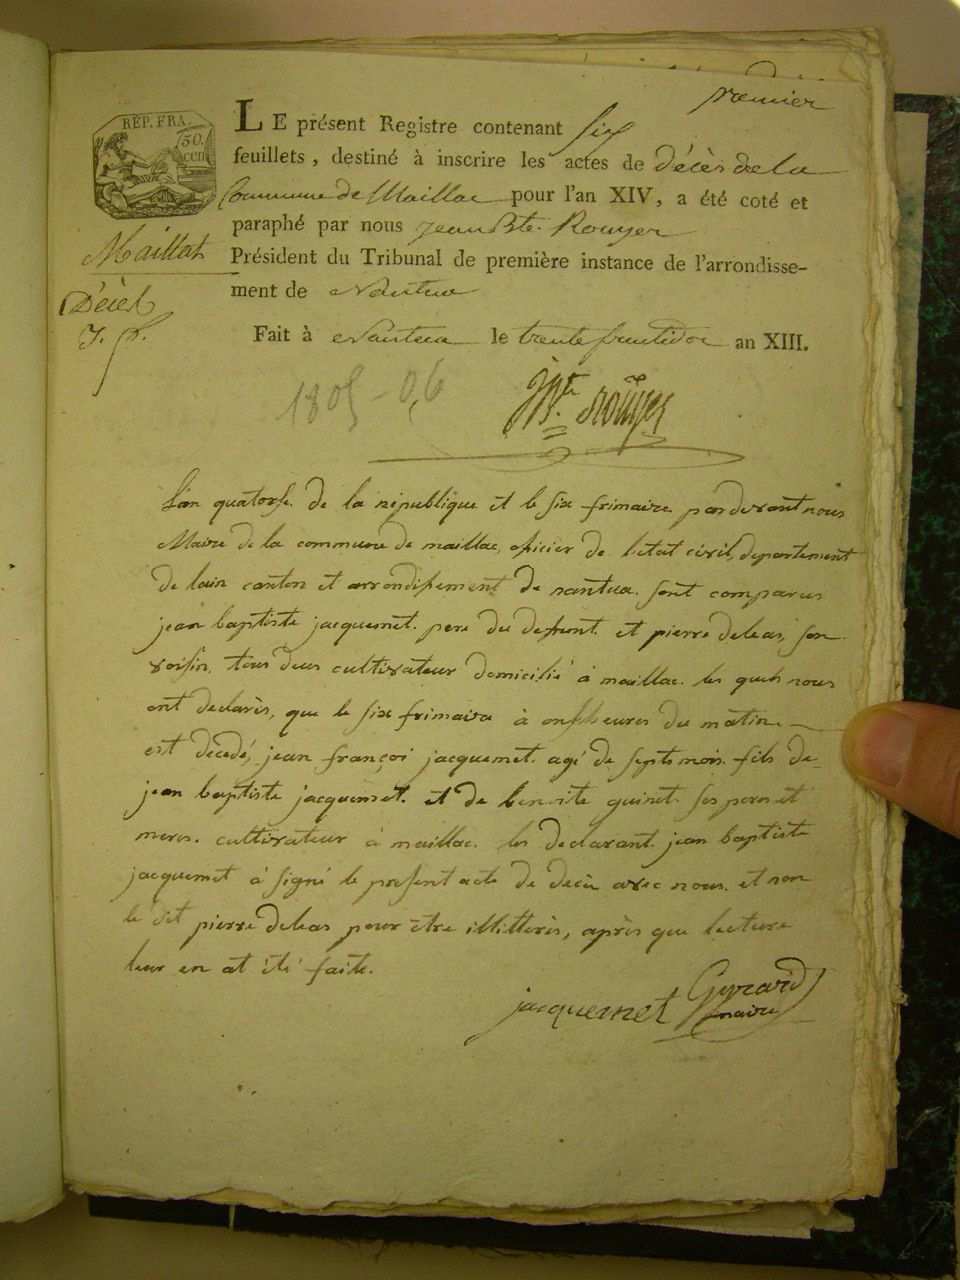 premier
REP. FRA.
50.
cen
LE présent Registre contenant six
feuillets, destiné à inscrire les actes de décès de la
Commune de Maillac pour l'an XIV, a été coté et
paraphé par nous Jean Bte. Rouyer
Président du Tribunal de première instance de l'arrondisse-
ment de Nantua
Maillat
Décès
Fait à Nantua le trente fructidor an XIII.
1805-06
JBte Rouyer
L'an quatorse de la république et le six frimaire pardevant nous
Maire de la commune de maillac, oficier de l'etat civil, departement
de lain canton et arrondissement de nantua. sont comparus
jean baptiste jacquemet. pere du defunt. et pierre deleas, son
voisin, tous deus cultivateur domicilié à maillac. les quels nous
ont declarés, que le six frimaire à onse heures du matin
est décedé, jean françoi jacquemet. agé de sept mois. fils de
jean baptiste jacquemet. et de benoite guinet. ses peres et
meres. cultivateur à maillac. les declarant. jean baptiste
jacquemet à signé le present acte de décès avec nous. et non
le dit pierre deleas pour être illitterés, après que lecture
leur en at été faite.
jacquemet Gyrard
maire